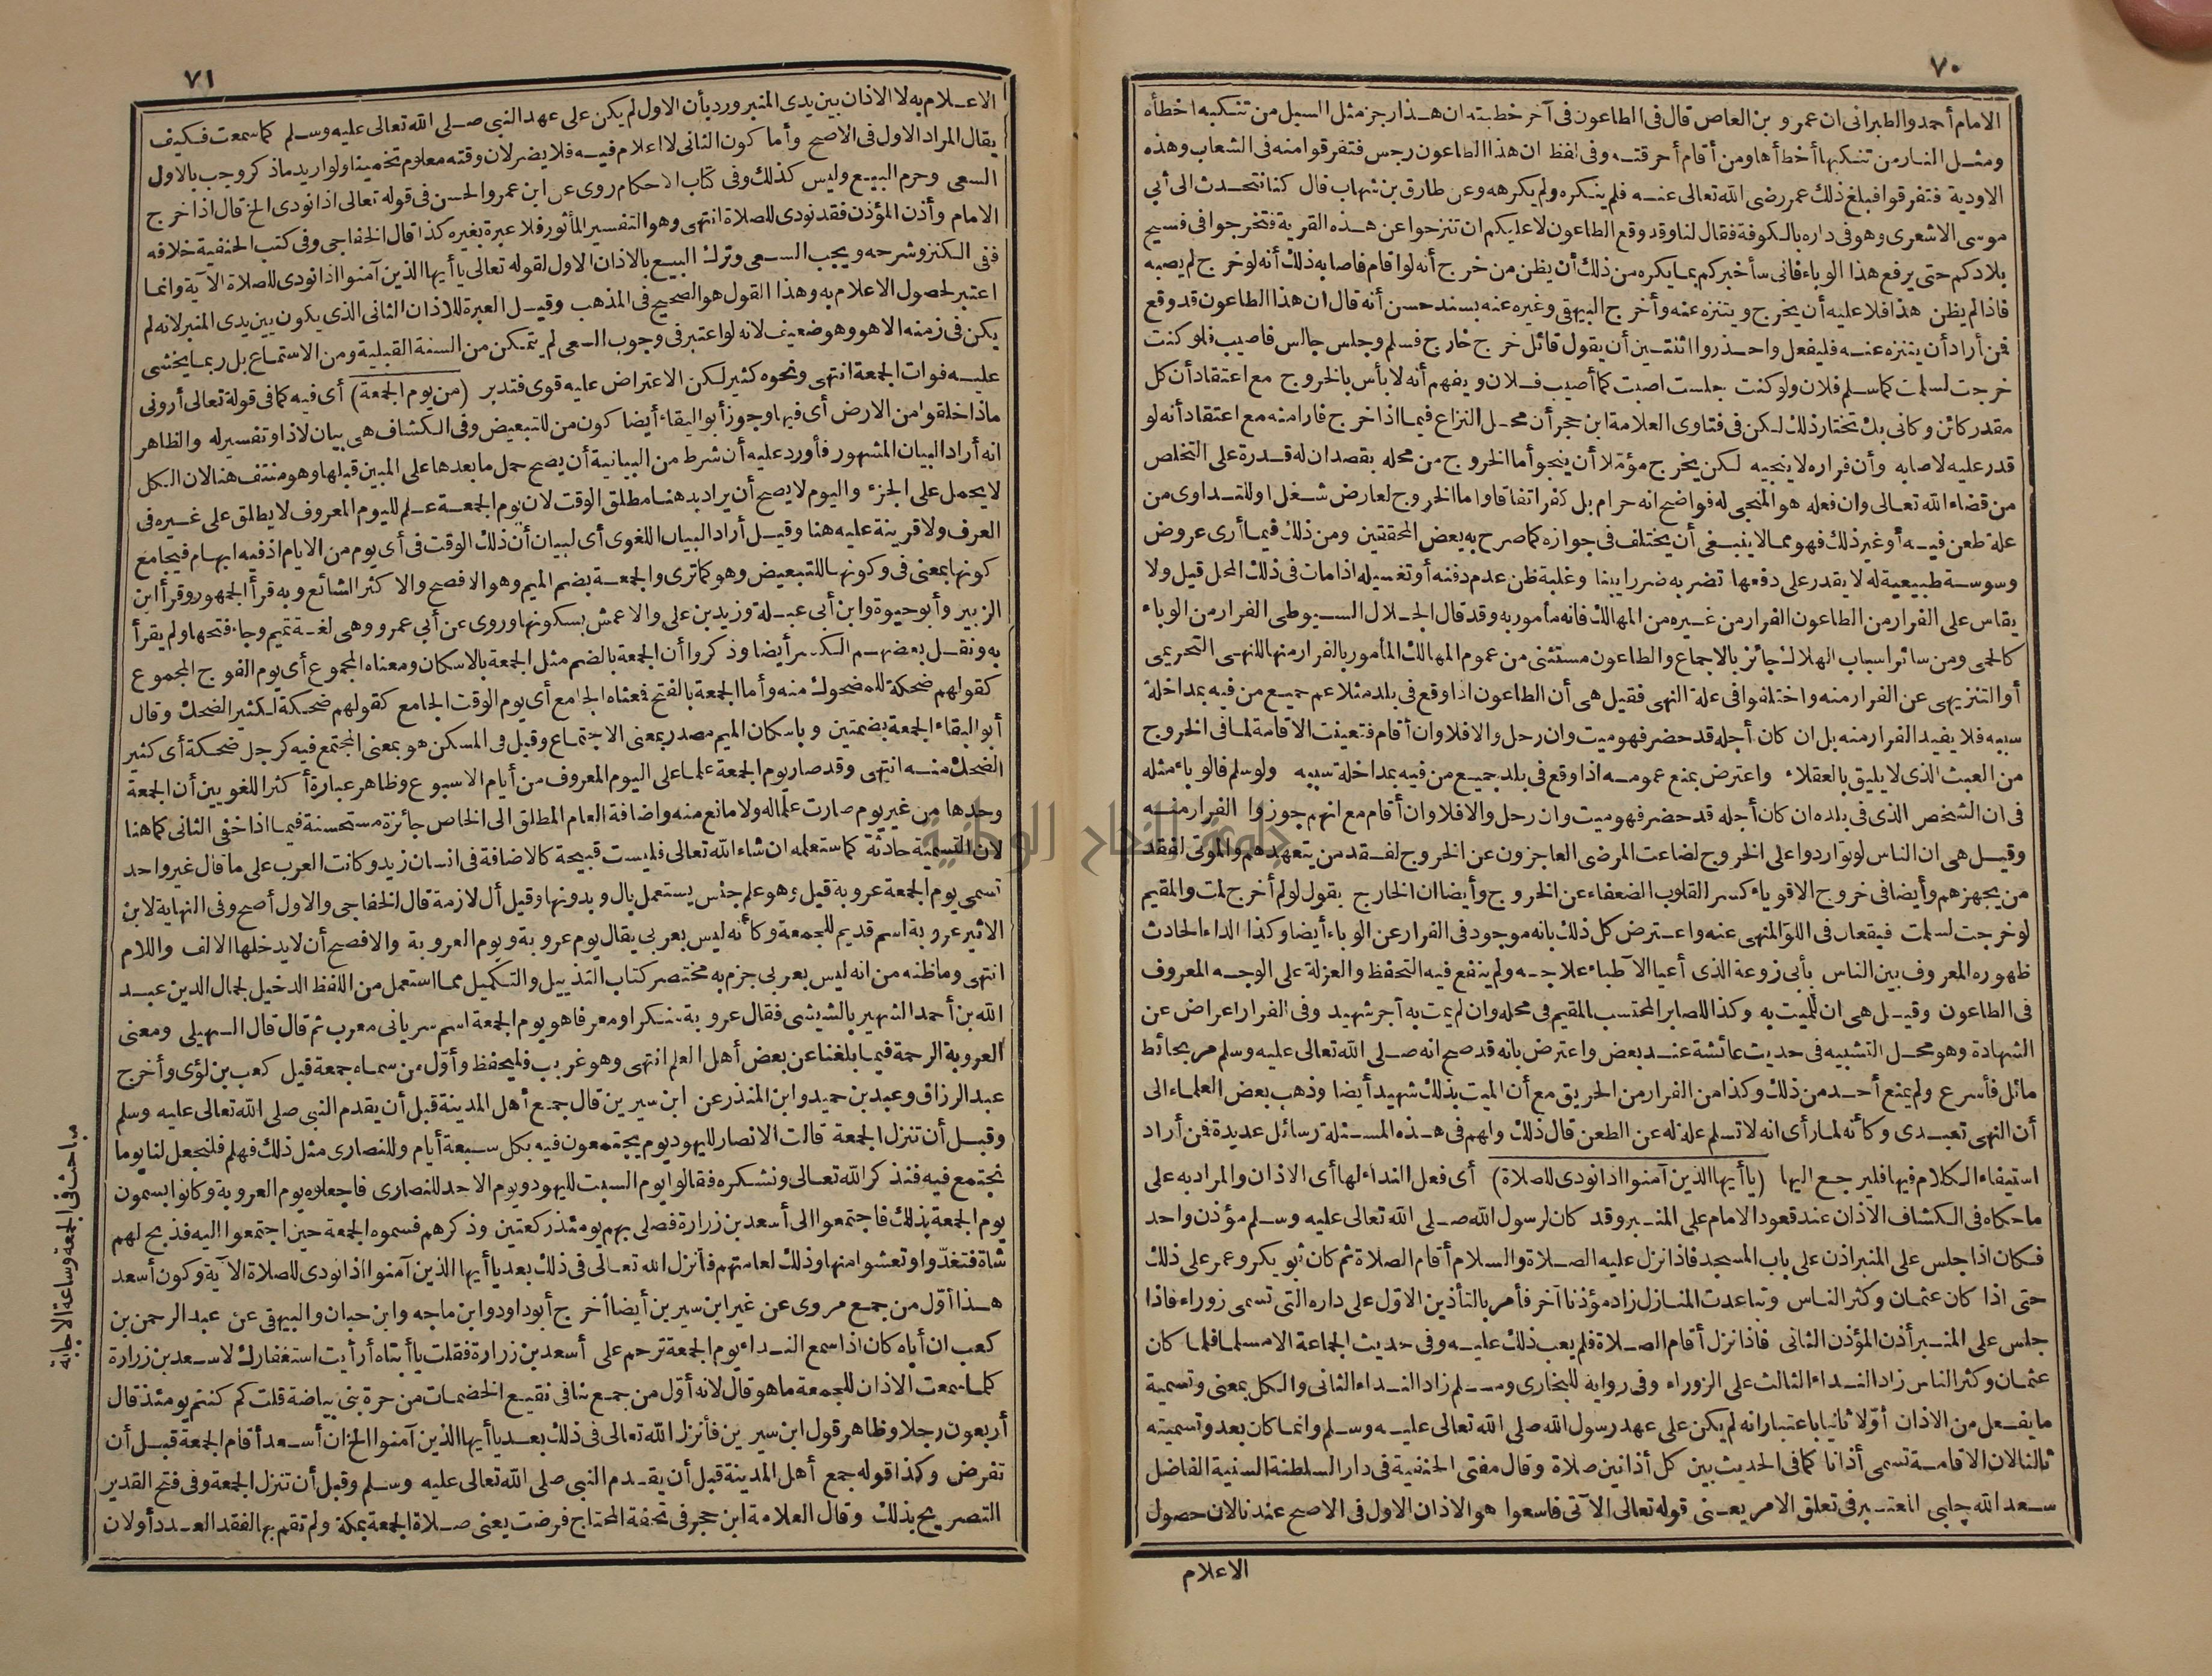 ٧٠
الامام أحمد والطبراني ان عمرو بن العاص قال في الطاعون في آخر خطبته ان هذا رجز مثل السيل من تنكبه اخطأه
ومثل النار من تنكبها أخطأها ومن أقام أحرقته وفي لفظ ان هذا الطاعون رجس فتفرقوا منه في الشعاب وهذه
الاودية فتفرقوا فبلغ ذلك عمر رضى الله تعالى عنه فلم ينكره ولم يكرهه وعن طارق بن شهاب قال كنا نتحدث الى أبي
موسى الاشعرى وهو في داره بالكوفة فقال لنا وقد وقع الطاعون لا عليكم ان تنزحوا عن هذه القرية فتخرجوا في فسيح
بلادكم حتى يرفع هذا الوباء فانى سأخبركم بما يكره من ذلك أن يظن من خرج أنه لو أقام فأصابه ذلك أنه لو خرج لم يصبه
فاذا لم يظن هذا فلا عليه أن يخرج ويتنزه عنه وأخرج البيهقي وغيره عنه بسند حسن أنه قال ان هذا الطاعون قد وقع
فمن أراد أن يتنزه عنه فليفعل واحذروا اثنتين أن يقول قائل خرج خارج فسلم وجلس جالس فاصيب فلو كنت
خرجت لسلمت كما سلم فلان ولو كنت جلست اصبت كما أصيب فلان ويفهم أنه لا بأس بالخروج مع اعتقاد أن كل
مقدر كائن وكانى بك تختار ذلك لكن في فتاوى العلامة ابن حجر أن محل النزاع فيما اذا خرج فارا منه مع اعتقاد أنه لو
قدر عليه لاصابه وأن فراره لا ينجيه لكن يخرج مؤملا أن ينجو أما الخروج من محله بقصد ان له قدرة على التخلص
من قضاء الله تعالى وان فعله هو المنجى له فواضح انه حرام بل كفر اتفاقا واما الخروج لعارض شغل او للتداوى من
علة طعن فيه أو غير ذلك فهو مما لا ينبغى أن يختلف في جوازه كما صرح به بعض المحققين ومن ذلك فيما أرى عروض
وسوسة طبيعية له لا يقدر على دفعها تضر به ضررا بينا وغلبة ظن عدم دفنه أو تغسيله اذا مات في ذلك المحل قيل ولا
يقاس على الفرار من الطاعون الفرار من غيره من المهالك فانه مأمور به وقد قال الجلال السيوطى الفرار من الوباء
كالحمى ومن سائر اسباب الهلاك جائز بالاجماع والطاعون مستثنى من عموم المهالك المأمور بالفرار منها للنهى التحريمى
أو التنزيهى عن الفرار منه واختلفوا في علة النهى فقيل هي أن الطاعون اذا وقع في بلد مثلا عم جميع من فيه بمداخلة
سببه فلا يفيد الفرار منه بل ان كان أجله قد حضر فهو ميت وان رحل والا فلا وان أقام فتعينت الاقامة لما في الخروج
من العبث الذى لا يليق بالعقلاء واعترض بمنع عمومه اذا وقع في بلد جميع من فيه بمداخلة سببه ولو سلم فالوباء مثله
في ان الشخص الذى في بلده ان كان أجله قد حضر فهو ميت وان رحل والا فلا وان أقام مع انهم جوزوا الفرار منه
وقيل هى ان الناس لو تواردوا على الخروج لضاعت المرضى العاجزون عن الخروج لفقد من يتعهدهم والموتى لفقد
من يجهزهم وأيضا في خروج الاقوياء كسر القلوب الضعفاء عن الخروج وأيضا ان الخارج يقول لو لم أخرج لمت والمقيم
لو خرجت لسلمت فيقعان في اللو المنهى عنه واعترض كل ذلك بانه موجود في الفرار عن الوباء أيضا وكذا الداء الحادث
ظهوره المعروف بين الناس بأبى زوعة الذى أعيا الاطباء علاجه ولم ينفع فيه التحفظ والعزلة على الوجه المعروف
في الطاعون وقيل هى ان للميت به وكذا للصابر المحتسب المقيم في محله وان لم يمت به أجر شهيد وفي الفرار اعراض عن
الشهادة وهو محل التشبيه في حديث عائشة عند بعض واعترض بانه قد صح انه صلى الله تعالى عليه وسلم مر بحائط
مائل فأسرع ولم يمنع أحد من ذلك وكذا من الفرار من الحريق مع أن الميت بذلك شهيد أيضا وذهب بعض العلماء الى
أن النهى تعبدى وكأنه لما رأى انه لا تسلم علة له عن الطعن قال ذلك ولهم في هذه المسئلة رسائل عديدة فمن أراد
استيفاء الكلام فيها فليرجع اليها (يا أيها الذين آمنوا اذا نودى للصلاة) أى فعل النداء لها أى الاذان والمراد به على
ما حكاه في الكشاف الاذان عند قعود الامام على المنبر وقد كان لرسول الله صلى الله تعالى عليه وسلم مؤذن واحد
فكان اذا جلس على المنبر اذن على باب المسجد فاذا نزل عليه الصلاة والسلام أقام الصلاة ثم كان أبو بكر وعمر على ذلك
حتى اذا كان عثمان وكثر الناس وتباعدت المنازل زاد مؤذنا آخر فأمر بالتأذين الاول على داره التى تسمى زوراء فاذا
جلس على المنبر أذن المؤذن الثانى فاذا نزل أقام الصلاة فلم يعب ذلك عليه وفي حديث الجماعة الا مسلما فلما كان
عثمان وكثر الناس زاد النداء الثالث على الزوراء وفي رواية للبخارى ومسلم زاد النداء الثانى والكل بمعنى وتسمية
ما يفعل من الاذان أولا ثانيا باعتبار انه لم يكن على عهد رسول الله صلى الله تعالى عليه وسلم وانما كان بعد وتسميته
ثالثا لان الاقامة تسمى أذانا كما في الحديث بين كل أذانين صلاة وقال مفتى الحنفية في دار السلطنة السنية الفاضل
سعد الله چلبى المعتبر في تعلق الامر يعنى قوله تعالى الآتى فاسعوا هو الاذان الاول في الاصح عندنا لان حصول
الاعلام
٧١
الاعلام به لا الاذان بين يدى المنبر ورد بأن الاول لم يكن على عهد النبى صلى الله تعالى عليه وسلم كما سمعت فكيف
يقال المراد الاول في الاصح وأما كون الثانى لا اعلام فيه فلا يضر لان وقته معلوم تخمينا ولو اريد ما ذكر وجب بالاول
السعى وحرم البيع وليس كذلك وفي كتاب الاحكام روى عن ابن عمر والحسن في قوله تعالى اذا نودى الخ قال اذا خرج
الامام وأذن المؤذن فقد نودى للصلاة انتهى وهو التفسير المأثور فلا عبرة بغيره كذا قال الخفاجى وفي كتب الحنفية خلافه
ففى الكنز وشرحه ويجب السعى وترك البيع بالاذان الاول لقوله تعالى يا أيها الذين آمنوا اذا نودى للصلاة الآية وانما
اعتبر لحصول الاعلام به وهذا القول هو الصحيح في المذهب وقيل العبرة للاذان الثانى الذى يكون بين يدى المنبر لانه لم
يكن في زمنه الا هو وهو ضعيف لانه لو اعتبر في وجوب السعى لم يتمكن من السنة القبلية ومن الاستماع بل ربما يخشى
عليه فوات الجمعة انتهى ونحوه كثير لكن الاعتراض عليه قوى فتدبر (من يوم الجمعة) أى فيه كما في قوله تعالى أرونى
ماذا خلقوا من الارض أى فيها وجوز أبو البقاء أيضا كون من للتبعيض وفي الكشاف هى بيان لاذا وتفسير له والظاهر
انه أراد البيان المشهور فأورد عليه أن شرط من البيانية أن يصح حمل ما بعدها على المبين قبلها وهو منتف هنا لان الكل
لا يحمل على الجزء واليوم لا يصح أن يراد به هنا مطلق الوقت لان يوم الجمعة علم لليوم المعروف لا يطلق على غيره في
العرف ولا قرينة عليه هنا وقيل أراد البيان اللغوى أى لبيان أن ذلك الوقت في أى يوم من الايام اذ فيه ابهام فيجامع
كونها بمعنى في وكونها للتبعيض وهو كما ترى والجمعة بضم الميم وهو الافصح والاكثر الشائع وبه قرأ الجمهور وقرأ ابن
الزبير وأبو حيوة وابن أبى عبلة وزيد بن على والاعمش بسكونها وروى عن أبي عمرو وهى لغة تميم وجاء فتحها ولم يقرأ
به ونقل بعضهم الكسر أيضا وذكروا أن الجمعة بالضم مثل الجمعة بالاسكان ومعناه المجموع أى يوم الفوج المجموع
كقولهم ضحكة للمضحوك منه وأما الجمعة بالفتح فمعناه الجامع أى يوم الوقت الجامع كقولهم ضحكة لكثير الضحك وقال
أبو البقاء الجمعة بضمتين وباسكان الميم مصدر بمعنى الاجتماع وقيل في المسكن هو بمعنى المجتمع فيه كرجل ضحكة أى كثير
الضحك منه انتهى وقد صار يوم الجمعة علما على اليوم المعروف من أيام الاسبوع وظاهر عبارة أكثر اللغويين أن الجمعة
وحدها من غير يوم صارت علما له ولا مانع منه واضافة العام المطلق الى الخاص جائزة مستحسنة فيما اذا خفى الثانى كما هنا
لان التسمية حادثة كما ستعلمه ان شاء الله تعالى فليست قبيحة كالاضافة في انسان زيد وكانت العرب على ما قال غير واحد
تسمى يوم الجمعة عروبة قيل وهو علم جنس يستعمل بال وبدونها وقيل أل لازمة قال الخفاجى والاول أصح وفي النهاية لابن
الاثير عروبة اسم قديم للجمعة وكأنه ليس بعربى يقال يوم عروبة ويوم العروبة والافصح أن لا يدخلها الالف واللام
انتهى وما ظنه من انه ليس بعربى جزم به مختصر كتاب التذييل والتكميل مما استعمل من اللفظ الدخيل لجمال الدين عبد
الله بن أحمد الشهير بالشيشى فقال عروبة منكرا ومعرفا هو يوم الجمعة اسم سريانى معرب ثم قال قال السهيلى ومعنى
العروبة الرحمة فيما بلغنا عن بعض أهل العلم انتهى وهو غريب فليحفظ وأول من سماه جمعة قيل كعب بن لؤى وأخرج
عبد الرزاق وعبد بن حميد وابن المنذر عن ابن سيرين قال جمع أهل المدينة قبل أن يقدم النبى صلى الله تعالى عليه وسلم
وقبل أن تنزل الجمعة قالت الانصار لليهود يوم يجتمعون فيه بكل سبعة أيام وللنصارى مثل ذلك فهلم فلنجعل لنا يوما
نجتمع فيه فنذكر الله تعالى ونشكره فقالوا يوم السبت لليهود ويوم الاحد للنصارى فاجعلاه يوم العروبة وكانوا يسمون
يوم الجمعة بذلك فاجتمعوا الى أسعد بن زرارة فصلى بهم يومئذ ركعتين وذكرهم فسموه الجمعة حين اجتمعوا اليه فذبح لهم
شاة فتغدوا وتعشوا منها وذلك لعامتهم فأنزل الله تعالى في ذلك بعد يا أيها الذين آمنوا اذا نودى للصلاة الآية وكون أسعد
هذا أول من جمع مروى عن غير ابن سيرين أيضا أخرج أبو داود وابن ماجه وابن حبان والبيهقى عن عبد الرحمن بن
كعب ان أباه كان اذا سمع النداء يوم الجمعة ترحم على أسعد بن زرارة فقلت يا أبتاه أرأيت استغفارك لاسعد بن زرارة
كلما سمعت الاذان للجمعة ما هو قال لانه أول من جمع بنا في نقيع الخضمات من حرة بنى بياضة قلت كم كنتم يومئذ قال
أربعون رجلا وظاهر قول ابن سيرين فأنزل الله تعالى في ذلك بعد يا أيها الذين آمنوا الخ ان أسعد أقام الجمعة قبل أن
تفرض وكذا قوله جمع أهل المدينة قبل أن يقدم النبى صلى الله تعالى عليه وسلم وقبل أن تنزل الجمعة وفي فتح القدير
التصريح بذلك وقال العلامة ابن حجر في تحفة المحتاج فرضت يعنى صلاة الجمعة بمكة ولم تقم بها لفقد العدد أو لان
مباحث في الجمعة وساعة الاجابة